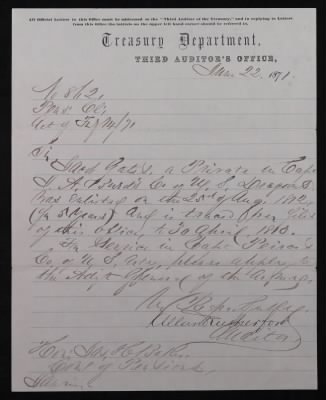 All Official Letters to this Office must be addressed to the "Third Auditor of the Treasury," and in replying to Letters
from this Office the initials on the upper left hand corner should be referred to.
Treasury Department,
THIRD AUDITOR'S OFFICE,
22, 1871.
No 812.
Act of Feb 14/71
Sir
a Private in Capt
Co of U. S. Dragoons
was Enlisted on the 25th of Aug. 1812,
(for 5 Years) and is traced from files
of this Office to 30 April 1813.
For Service in Capt
Co of U S please apply to
the Adjt General of the Army.
Very Respectfully
Allan Rutherford
Auditor
Hon. Jas. H. Baker
Com' of Pensions